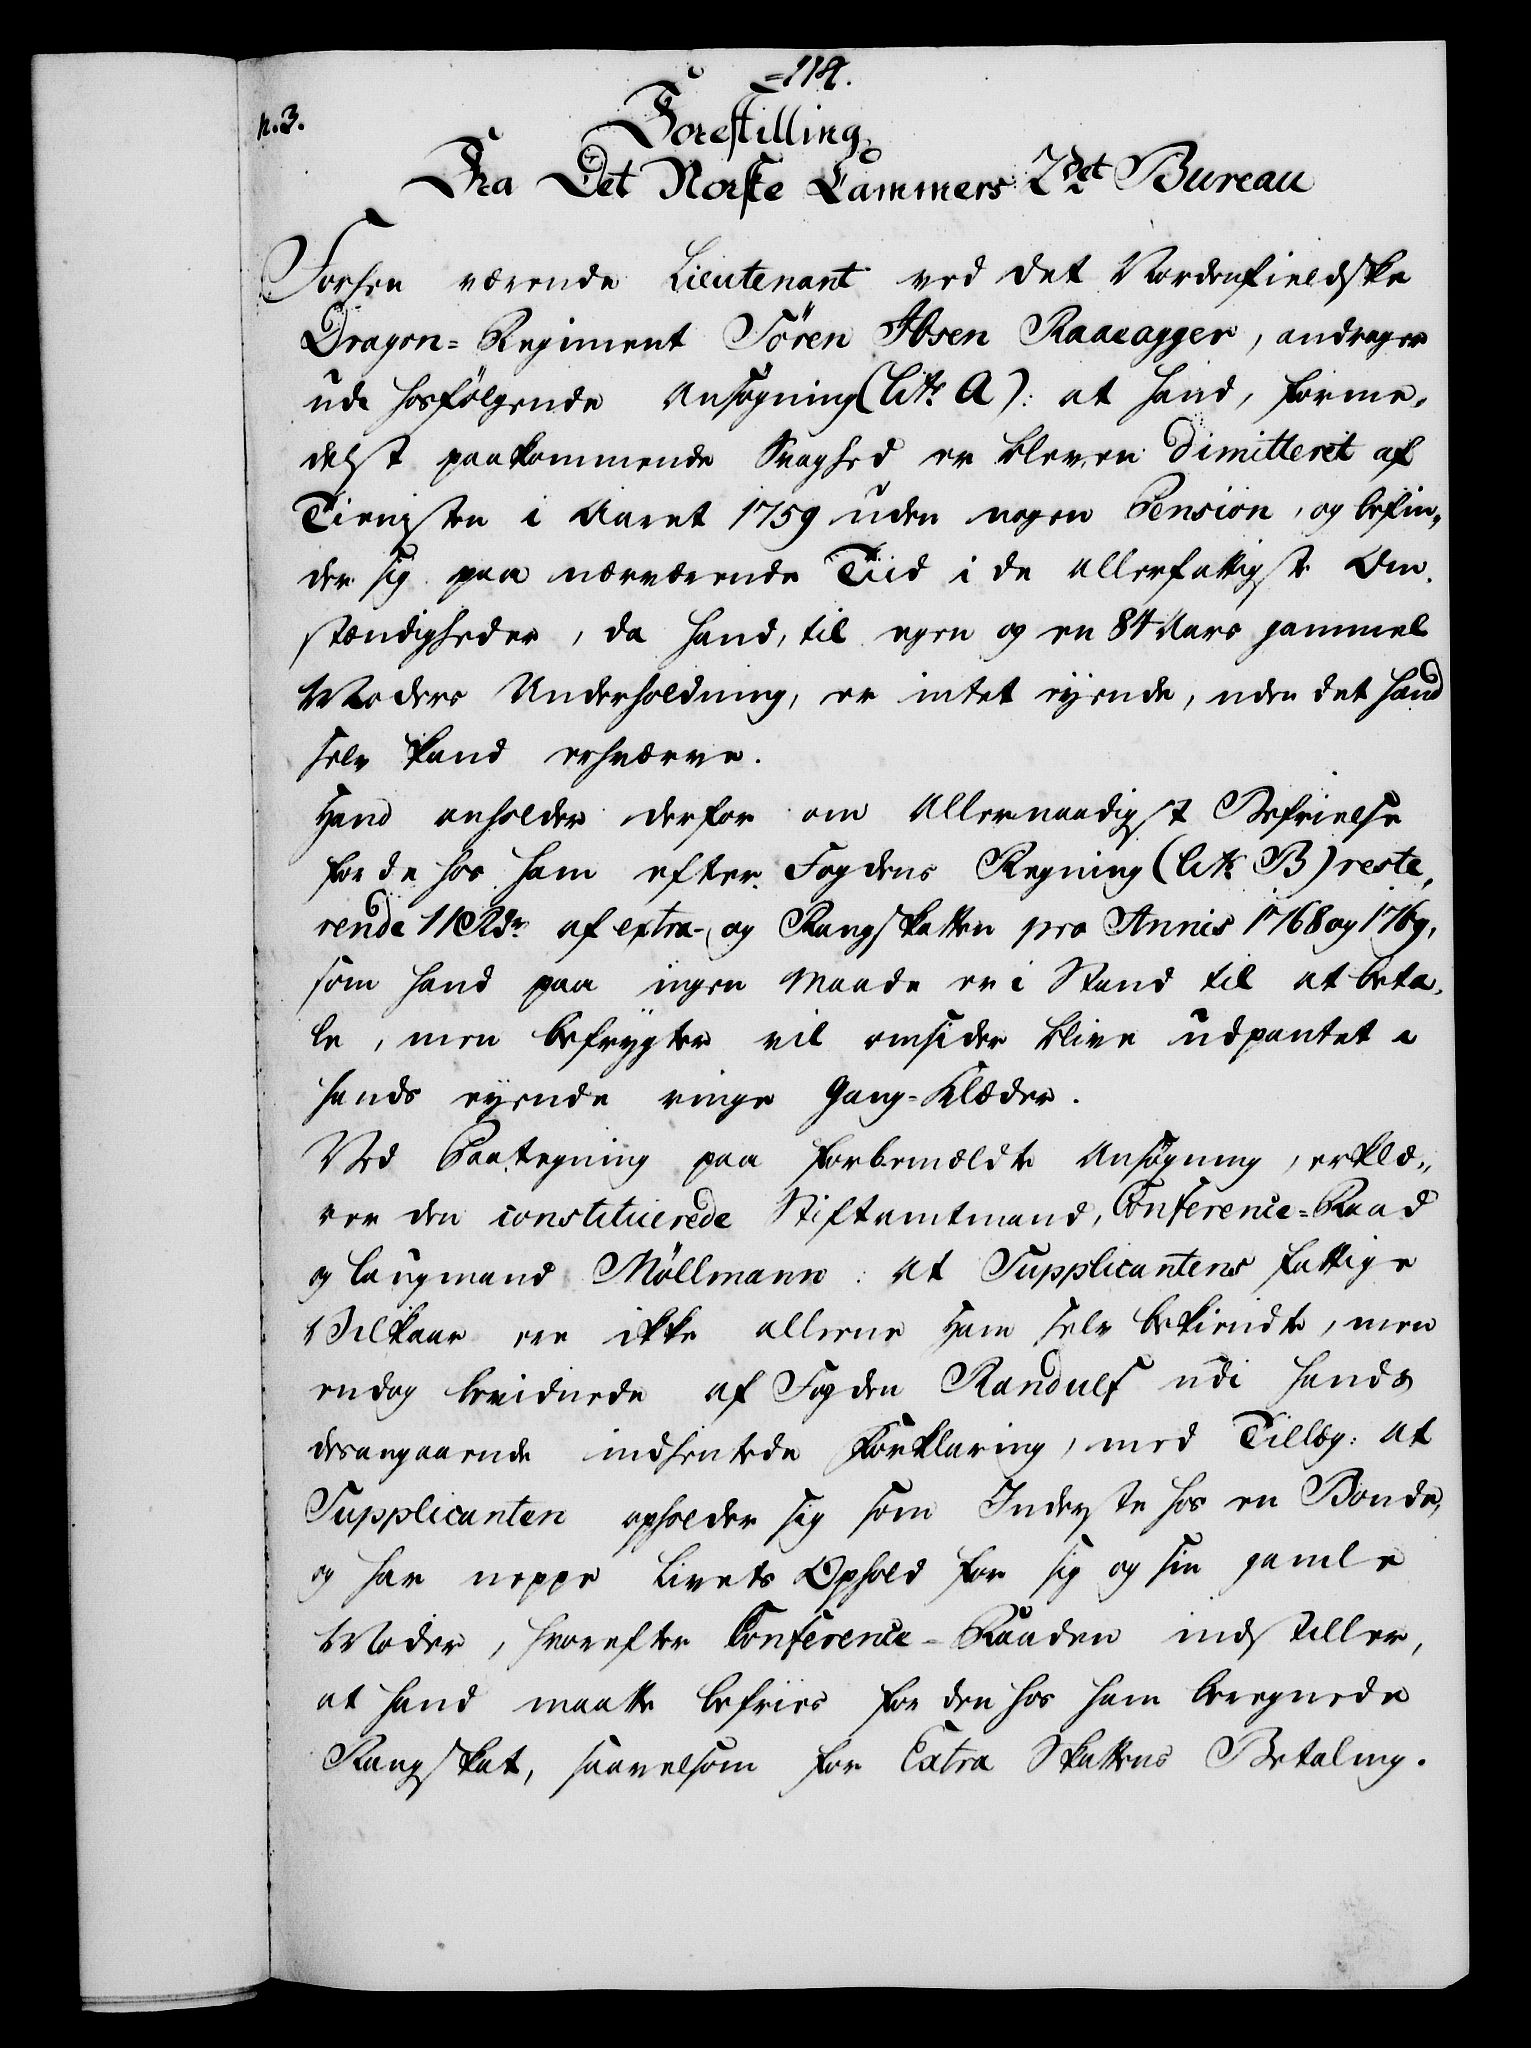 =114.
n. 3.
Forestilling
Fra Det Norske Cammers 2det Bureau
Forhen værende Lieutenant ved det Nordenfieldske
Dragon=Regiment Sören Ibsen Raaeagger, andrager
udi hosfölgende Ansögning (litr. A): at hand, forme,
delst paakommende Svaghed er bleven dimitteret af
Tienesten i Aaret 1759 uden nogen Pension, og befin,
der sig paa nærværende Tiid i de allerfattigste Om,
stændigheder, da hand, til egen og en 84 Aars gammel
Moders Underholdning, er intet eyende, uden det hand
selv kand erhværve.
Hand anholder derfor om Allernaadigst Befrielse
for de hos ham efter Fogdens Regning (litr. B) reste,
rende 11 Rdr. af extra- og Rangskatten pro Annis 1768 og 1769,
som hand paa ingen Maade er i Stand til at beta,
le, men befrygter vil omsider blive udpantet i
hands eyende ringe Gang-Klæder.
Ved Paategning paa forbemældte Ansögning, erklæ,,
rer den constituerede Stiftamtmand, Conference=Raad
og Laugmand Möllmann: at Supplicantens fattige
Vilkaar ere ikke alleene Ham selv bekiendte, men
endog bevidnede af Fogden Randulf udi hands
desangaaende indhentede Forklaring, med Tillæg: at
Supplicanten opholder sig som Inderste hos en Bonde,
og har neppe Livets Ophold for sig og sin gamle
Moder, hvorefter Conference-Raaden indstiller,
at hand maatte befries for den hos ham beregnede
Rangskat, saavelsom for Extra Skattens Betaling.